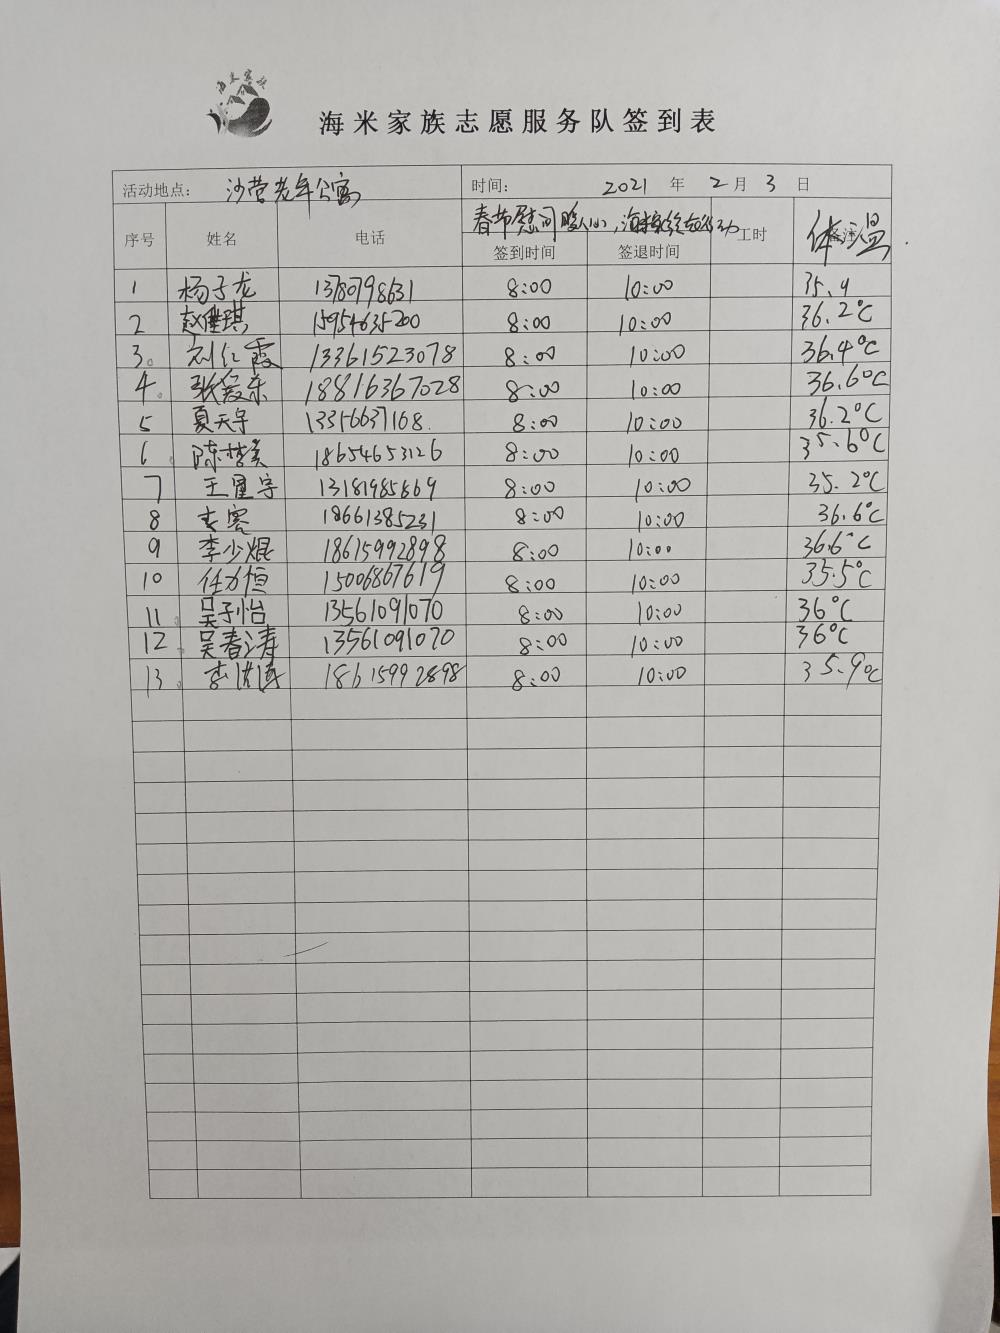 海米家族
海米家族志愿服务队签到表
活动地点： 沙营老年公寓 时间： 2021 年 2 月 3 日
春节慰问
序号 姓名 电话 签到时间 签退时间 工时 备注 体温
1 杨子龙 13780798631 8:00 10:00 35.9
2 赵继琪 15954635200 8:00 10:00 36.2℃
3 刘仁霞 13361523078 8:00 10:00 36.4℃
4 张爱东 18816367028 8:00 10:00 36.6℃
5 夏天宇 13356637168 8:00 10:00 36.2℃
6 陈梦美 18654653126 8:00 10:00 35.6℃
7 王星宇 13181985869 8:00 10:00 35.2℃
8 李睿 18661385231 8:00 10:00 36.6℃
9 李少焜 18615992898 8:00 10:00 36.6℃
10 任力恒 15006867619 8:00 10:00 35.5℃
11 吴子怡 13561091070 8:00 10:00 36℃
12 吴春涛 13561091070 8:00 10:00 36℃
13 李洪涛 18615992898 8:00 10:00 35.9℃